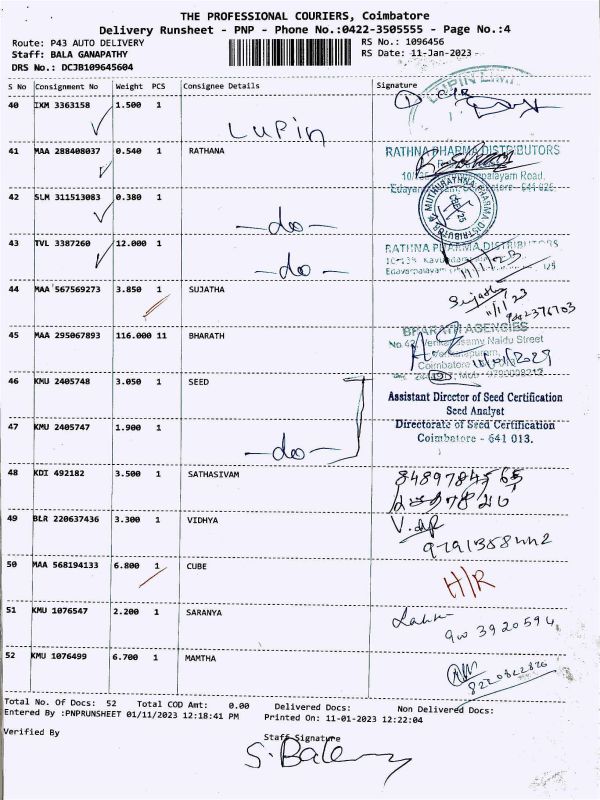 THE PROFESSIONAL COURIERS, Coimbatore
Delivery Runsheet - PNP - Phone No.:0422-3505555 - Page No.:4
Route: P43 AUTO DELIVERY RS No.: 1096456
Staff: BALA GANAPATHY RS Date: 11-Jan-2023
DRS No.: DCJB109645604
S No Consignment No Weight PCS Consignee Details Signature
40 IXM 3363158 1.500 1 Lupin
41 MAA 288408037 0.540 1 RATHANA RATHNA PHARMA DISTRIBUTORS
42 SLM 311513083 0.380 1 -do-
43 TVL 3387260 12.000 1 -do- RATHNA PHARMA DISTRIBUTORS
44 MAA 567569273 3.850 1 SUJATHA Sujatha
11/1/23
45 MAA 295067893 116.000 11 BHARATH BHARATH AGENCIES
46 KMU 2405748 3.050 1 SEED Assistant Director of Seed Certification
Seed Analyst
47 KMU 2405747 1.900 1 -do- Directorate of Seed Certification
Coimbatore - 641 013.
48 KDI 492182 3.500 1 SATHASIVAM
49 BLR 220637436 3.300 1 VIDHYA
50 MAA 568194133 6.800 1 CUBE H/R
51 KMU 1076547 2.200 1 SARANYA
52 KMU 1076499 6.700 1 MAMTHA
Total No. Of Docs: 52 Total COD Amt: 0.00 Delivered Docs: Non Delivered Docs:
Entered By :PNPRUNSHEET 01/11/2023 12:18:41 PM Printed On: 11-01-2023 12:22:04
Verified By Staff Signature